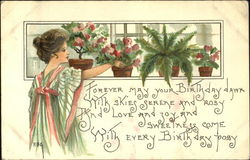 Forever may your Birthday dawn
With skies serene and rosy
And Love and joy and
sweetness come
With every Birthday posy